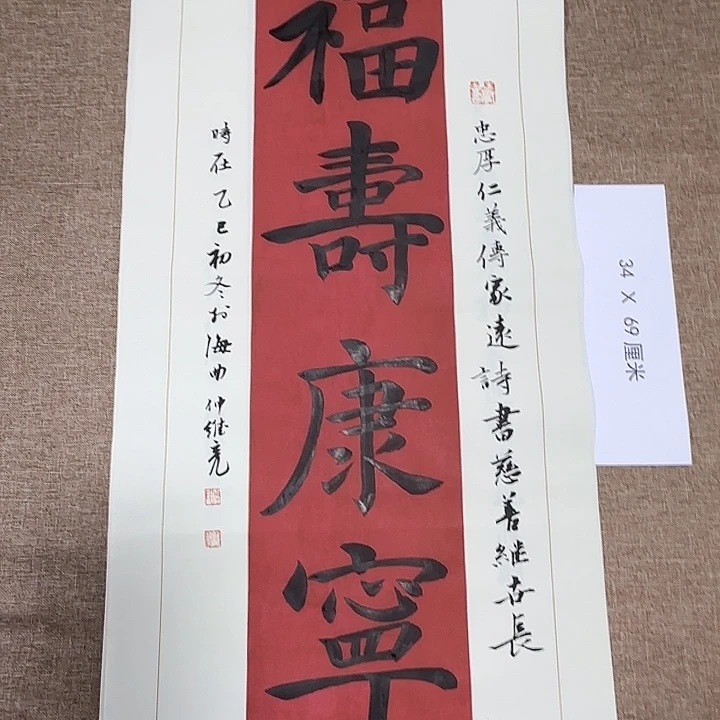 忠厚仁義傳家遠詩書慈善继世長
福壽康寧
時在乙巳初冬於海曲仲維亮
34 X 69 厘米